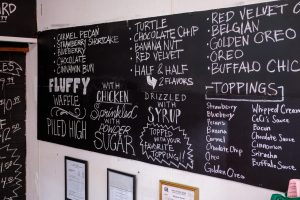 ARD
• CARMEL PECAN
• STRAWBERRY SHORTCAKE
• BLUEBERRY
• CHOCOLATE
• CINNAMON BUN
• TURTLE
• CHOCOLATE CHIP
• BANANA NUT
• RED VELVET
• HALF & HALF
2 FLAVORS
• RED VELVET O
• BELGIAN
• GOLDEN OREO
• OREO
• BUFFALO CHIC
FLUFFY
WAFFLE
PILED HIGH
WITH
CHICKEN
Sprinkled
WITH
POWDER
SUGAR
DRIZZLED
WITH
SYRUP
TOPPED WITH
YOUR
FAVORITE
TOPPING!!
TOPPINGS
Strawberry
Blueberry
Pecans
Banana
Carmel
Chocolate Chip
Oreo
Golden Oreo
Whipped Cream
CeCi's Sauce
Bacon
Chocolate Sauce
Cinnamon
Sriracha
Buffalo Sauce